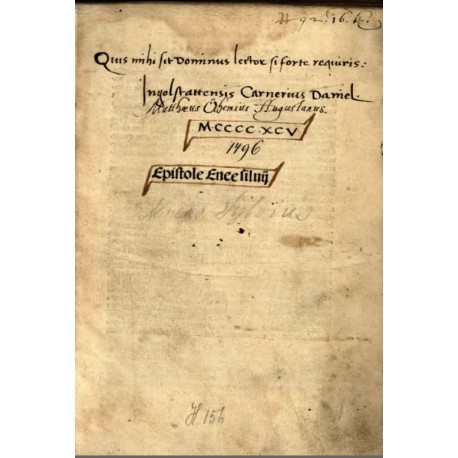 Quis mihi sit Dominus lector si forte requiris:
Ingolstattensis Carnerius Daniel.
Matthæus Augustanus.
M.CCCC.XCV
1496
Epistole Enee siluij
Aeneas Sylvius
H. 156